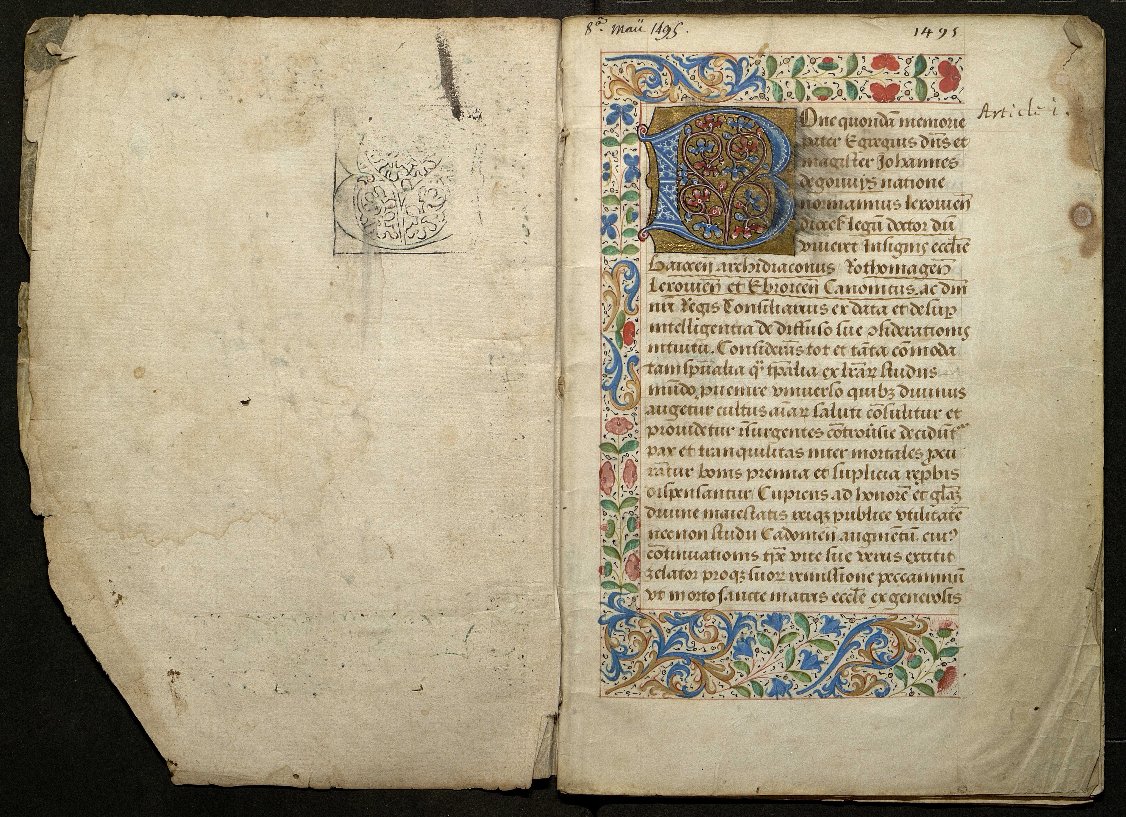 8ᵃ Maii 1495.
1495
Article i.
Bone quondā memorie
pater Egregius dn̄s et
magister Johannes
de gouuys natione
normannus lexouien̄
dioces̄ legū doctor dū
viueret Insignis eccl̄ie
Baiocen̄ archidiaconus Rothomagen̄
Lexouien̄ et Ebroicen̄ Canonicus ac dm̄
nr̄i Regis Consiliarius ex data et desup̄
intelligentia de diffuso sue ꝯsiderationis
intuitu. Considerās tot et tāta cōmoda
tam spūalia q̄ tp̄alia ex lr̄aꝝ studiis
mūdo ꝓuenire vniuerso quibꝫ diuinus
augetur cultus aīaꝝ saluti cōsulitur et
prouidetur īsurgentes cōtrou̓sie decidūt᷑
pax et tranquilitas inter mortales ꝓcu
rātur bonis premia et suplicia rep̄bis
dispensantur Cupiens ad honorē et gl̄aꝫ
diuine maiestatis reiqꝫ publice vtilitatē
nec non studii Cadomen̄ augmētū eiusꝫ
cōtinuationis tp̄e vite sue verus extitit
zelator proqꝫ suoꝝ remissione peccaminū
vt moꝛto sancte matris eccl̄ie ex generosis